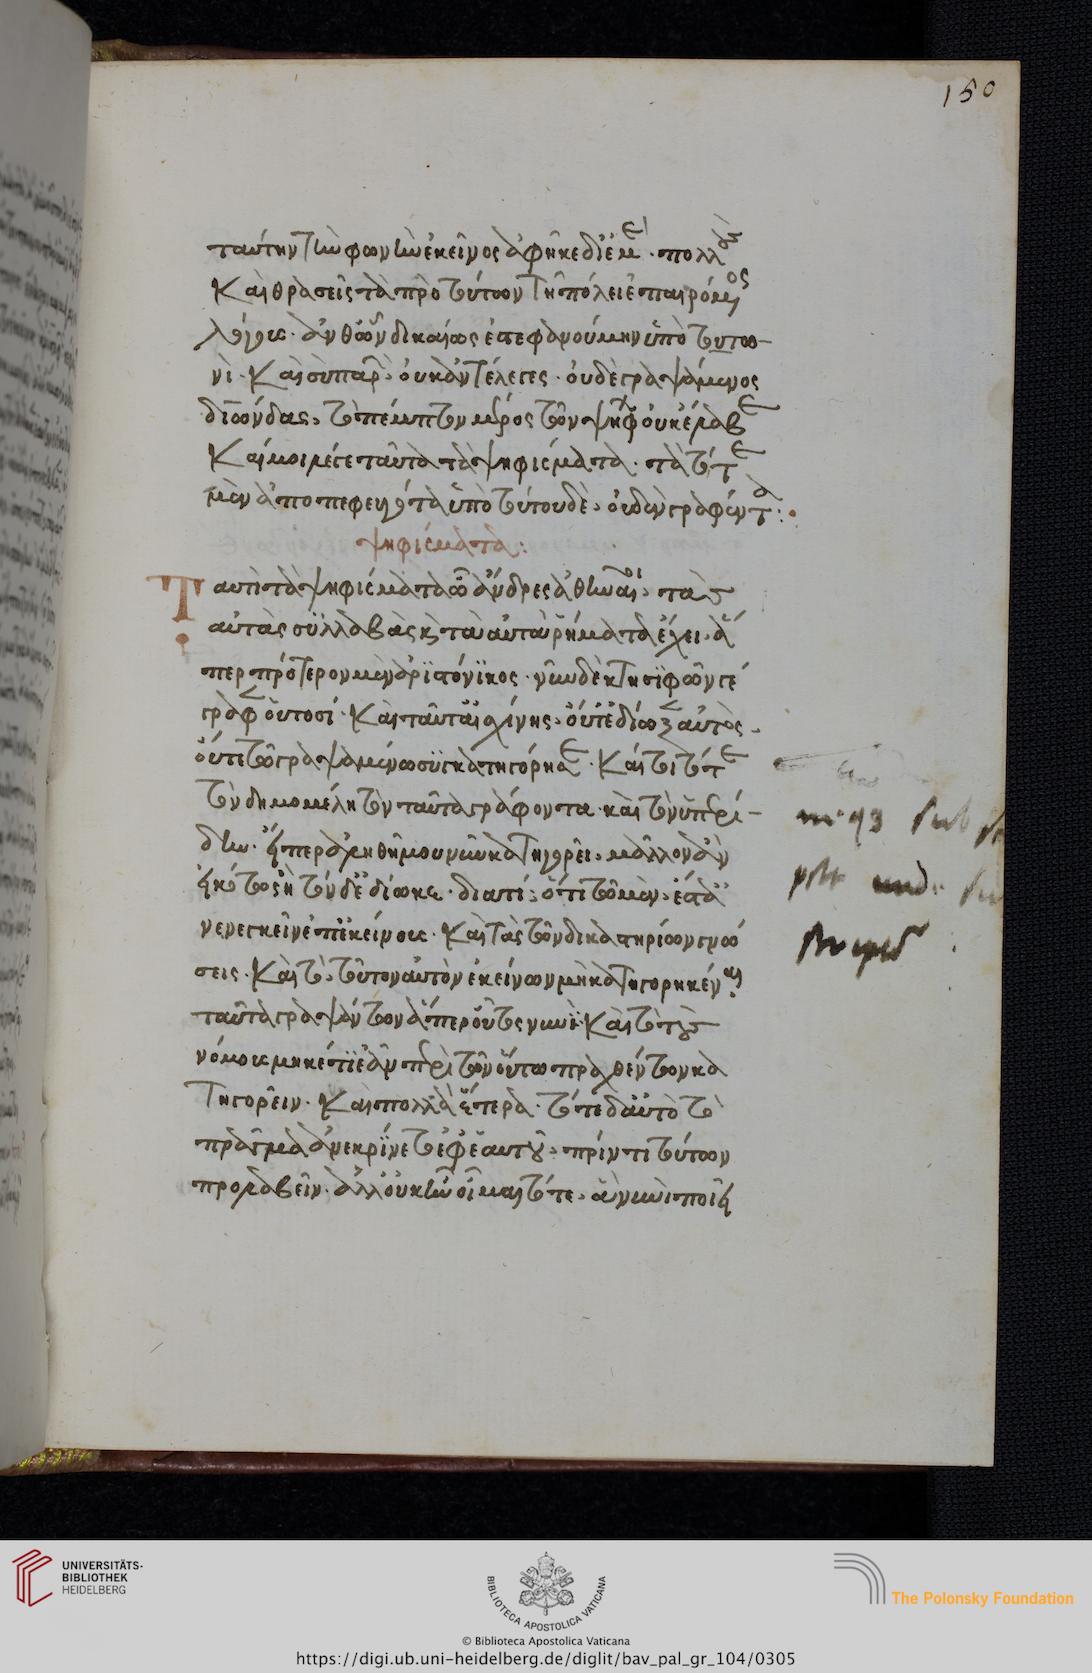 150
ταύτην τὴν φωνὴν ἐκεῖνος ἀφῆκε δι' ἐμέ· πολλοῖς
Καὶ θρασεῖς τὰ πρὸ τούτων τῇ πόλει ἐπαιρόμενος
λόγοις· ἀνθ' ὧν δικαίως ἐστεφανούμην ὑπὸ τουτω-
νὶ· Καὶ σὺ παρὼν οὐκ ἀντέλεγες· οὐδὲ γραψάμενος
διώνδας, τὸ πέμπτον μέρος τῶν ψήφων οὐκ ἔλαβε
Καί μοι λέγε ταῦτα τὰ ψηφίσματα· τὰ τότε
μὲν ἀποπεφευγότα ὑπὸ τούτου δὲ, οὐδὲν γραφέντα:
ψηφίσματα:
Ταυτὶ τὰ ψηφίσματα ὦ ἄνδρες ἀθηναῖοι, τὰς
αὐτὰς συλλαβὰς κ̀ ταὐτὰ ῥήματα ἔχει· ἅ
περ πρότερον μὲν ἀριστόνικος· νῦν δὲ κτησιφῶν γέ
γραφεν οὑτοσί· Καὶ ταῦτ' αἰσχίνης, οὔτ' ἐδίωξεν αὐτὸς·
οὔτε τῷ γραψαμένῳ συγκατηγόρησε· Καίτοι τότε
τὸν δημομέλη τὸν ταῦτα γράφοντα· καὶ τὸν ὑπερί-
δην· εἴπερ ἀληθῆ μου νῦν κατηγορεῖ, μᾶλλον ἂν
εἰκότως ἢ τόνδε ἐδίωκε· διατί; ὅτι τῷ μὲν, ἔστ' ἀ
νενεγκεῖν ἐπ' ἐκείνους· Καὶ τὰς τῶν δικαστηρίων γνώ
σεις· Καὶ τὸ, τοῦτον αὐτὸν ἐκείνων μὴ κατηγορηκέναι
ταῦτα γραψάντων ἅπερ οὗτος νυνὶ· Καὶ τὸ τοὺς
νόμους μηκέτι ἐᾶν περὶ τῶν οὕτω πραχθέντων κα
τηγορεῖν· Καὶ πολλὰ ἕτερα· τότε δ' αὐτὸ τὸ
πρᾶγμα ἀνεκρίνετο ἐφ' ἑαυτοῦ, πρίν τι τούτων
προλαβεῖν· ἀλλ' οὐκ ἦν οἶμαι τότε, ὃ νυνὶ ποιεῖ
UNIVERSITÄTS-
BIBLIOTHEK
HEIDELBERG
BIBLIOTECA APOSTOLICA VATICANA
The Polonsky Foundation
© Biblioteca Apostolica Vaticana
https://digi.ub.uni-heidelberg.de/diglit/bav_pal_gr_104/0305